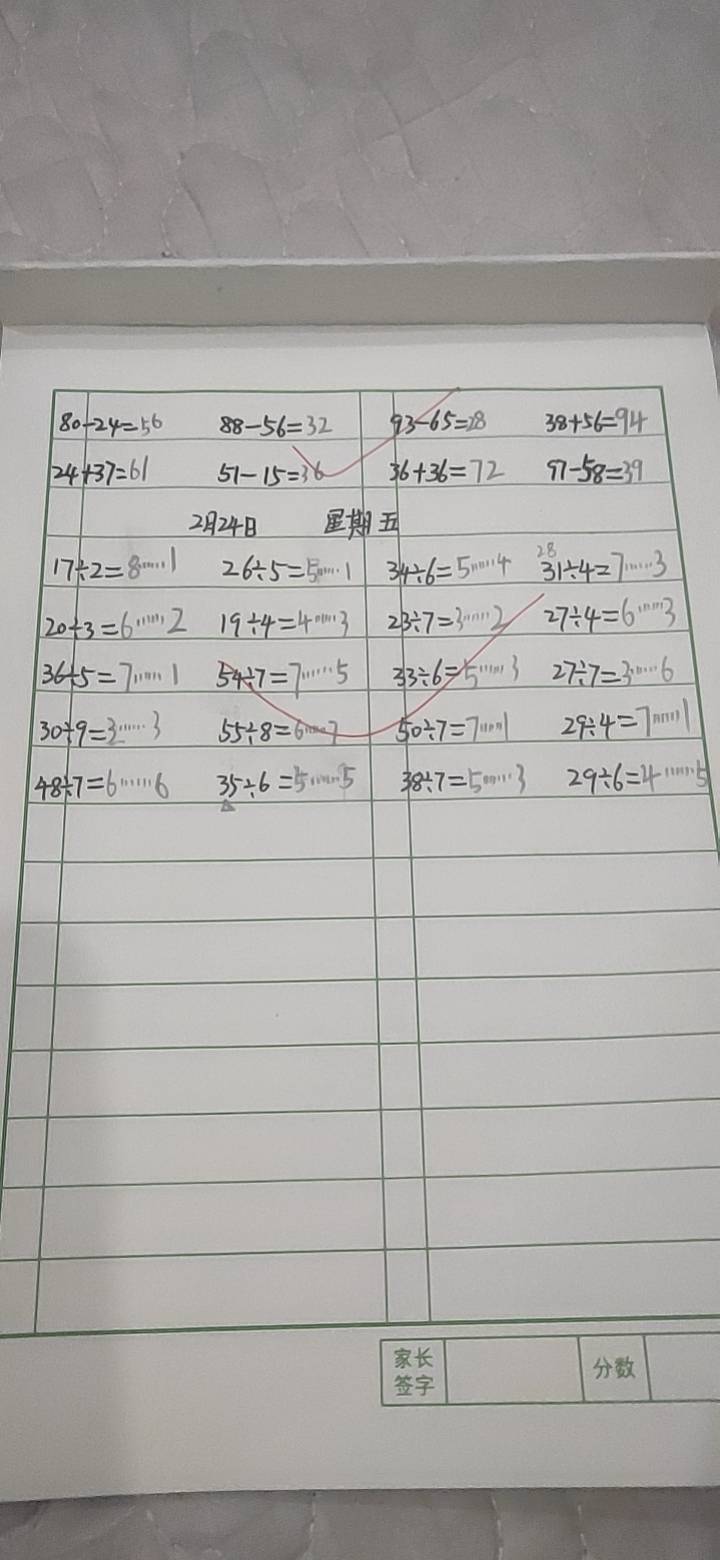 80-24=56 88-56=32 93-65=28 38+56=94
24+37=61 51-15=36 36+36=72 97-58=39
2月24日 星期五
17÷2=8……1 26÷5=5……1 34÷6=5……4 31÷4=7……3
28
20÷3=6……2 19÷4=4……3 23÷7=3……2 27÷4=6……3
36÷5=7……1 54÷7=7……5 33÷6=5……3 27÷7=3……6
30÷9=3……3 55÷8=6……7 50÷7=7……1 29÷4=7……1
48÷7=6……6 35÷6=5……5 38÷7=5……3 29÷6=4……5
家长签字 分数